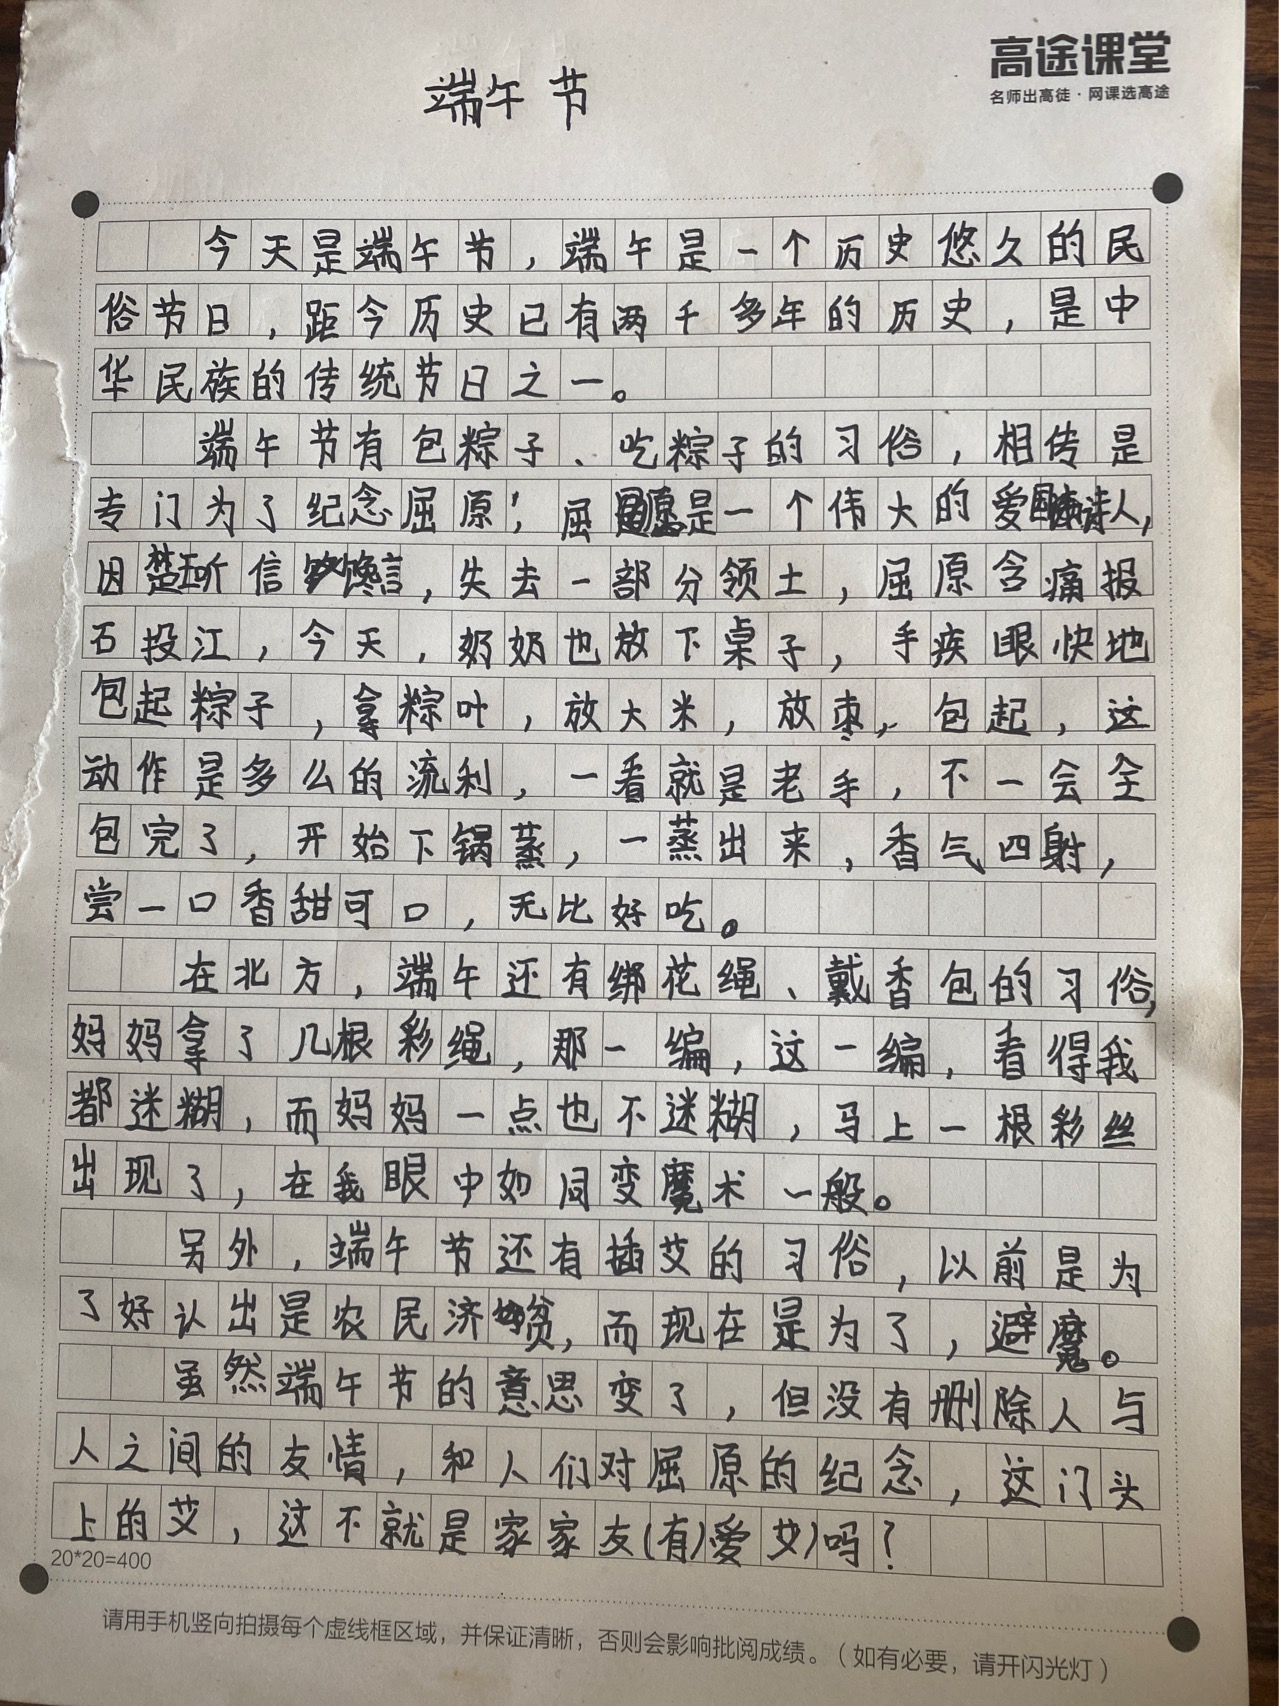 高途课堂
名师出高徒·网课选高途
端午节
今天是端午节，端午是一个历史悠久的民
俗节日，距今历史已有两千多年的历史，是中
华民族的传统节日之一。
端午节有包粽子、吃粽子的习俗，相传是
专门为了纪念屈原！屈是一个伟大的爱国诗人，
因楚王听信馋言，失去一部分领土，屈原含痛报
石投江，今天，奶奶也放下桌子，手疾眼快地
包起粽子，拿粽叶，放大米，放枣，包起，这
动作是多么的流利，一看就是老手，不一会全
包完了，开始下锅蒸，一蒸出来，香气四射，
尝一口香甜可口，无比好吃。
在北方，端午还有绑花绳、戴香包的习俗，
妈妈拿了几根彩绳，那一编，这一编，看得我
都迷糊，而妈妈一点也不迷糊，马上一根彩丝
出现了，在我眼中如同变魔术一般。
另外，端午节还有插艾的习俗，以前是为
了好认出是农民济贫，而现在是为了，避魔。
虽然端午节的意思变了，但没有删除人与
人之间的友情，和人们对屈原的纪念，这门头
上的艾，这不就是家家友(有)爱艾)吗？
20*20=400
请用手机竖向拍摄每个虚线框区域，并保证清晰，否则会影响批阅成绩。（如有必要，请开闪光灯）